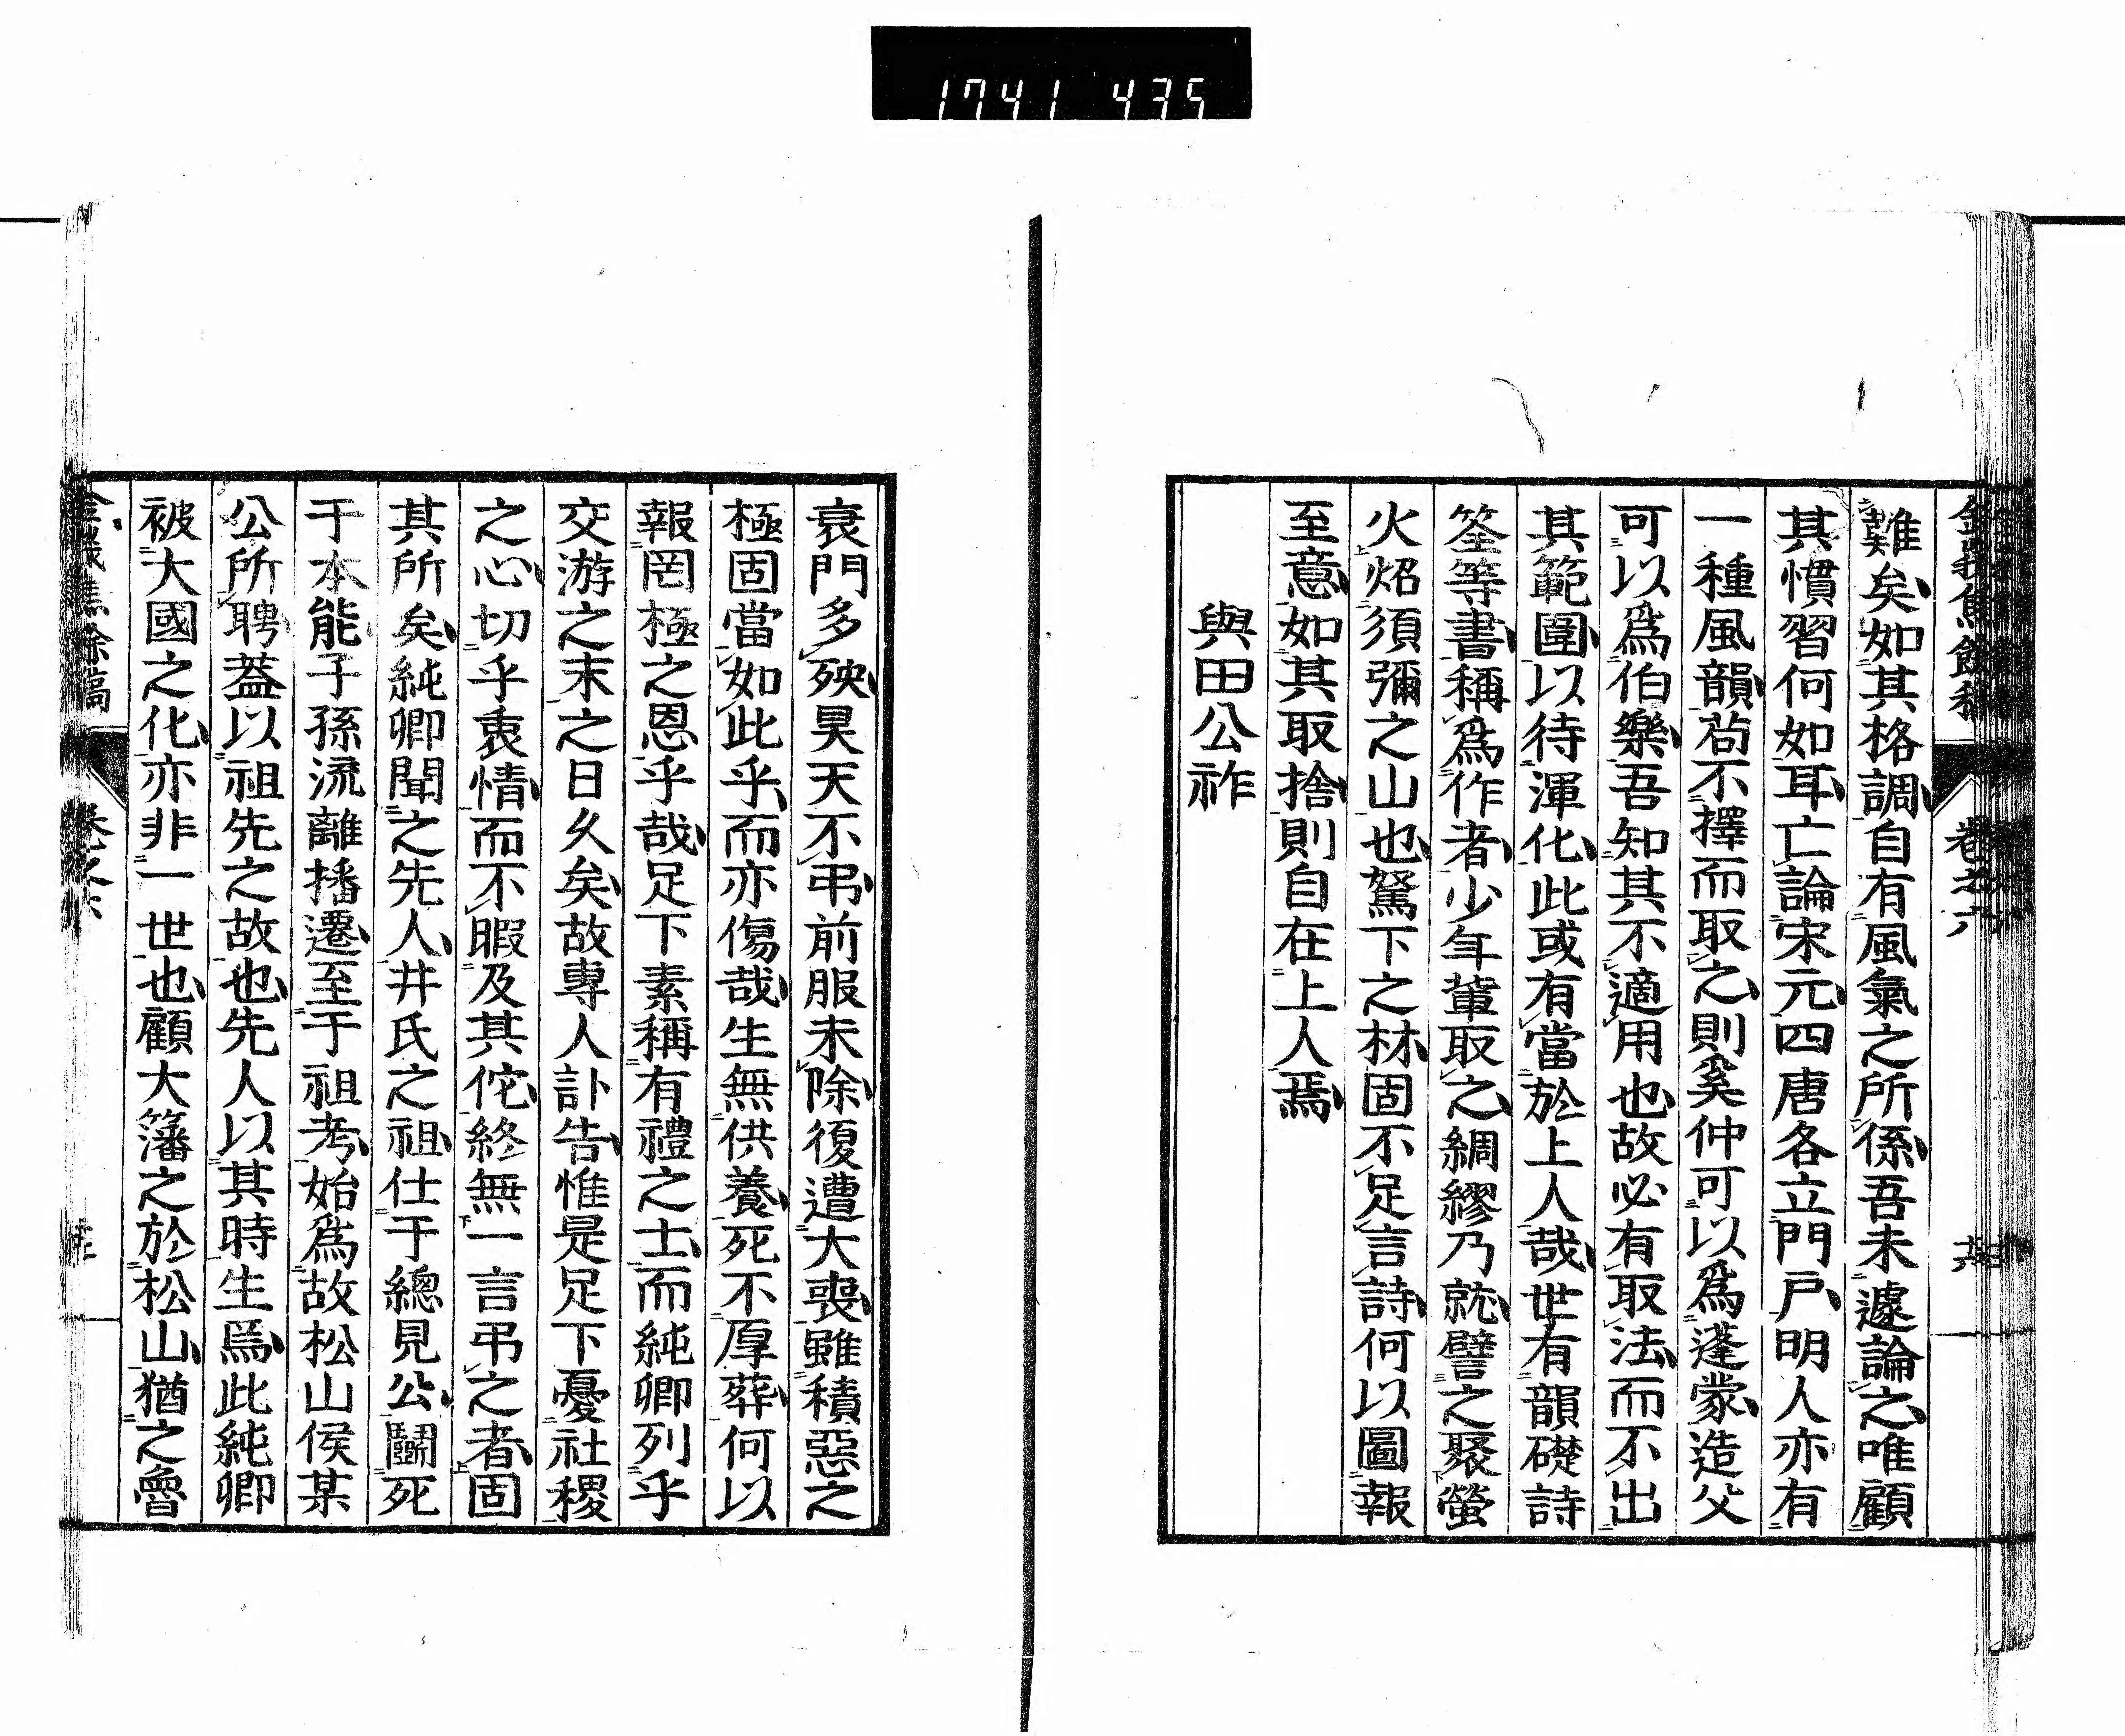 1741 435
難矣如其格調自有風氣之所係吾未遽論之唯顧
其慣習何如耳亡論宋元四唐各立門戶明人亦有
一種風韻苟不擇而取之則奚仲可以爲蓬蒙造父
可以爲伯樂吾知其不適用也故必有取法而不出
其範圍以待渾化此或有當於上人哉世有韻礎詩
筌等書稱爲作者少年輩取之綢繆乃就譬之聚螢
火炤須彌之山也駑下之林固不足言詩何以圖報
至意如其取捨則自在上人焉
與田公祚
衰門多殃昊天不弔前服未除復遭大喪雖積惡之
極固當如此乎而亦傷哉生無供養死不厚葬何以
報罔極之恩乎哉足下素稱有禮之士而純卿列乎
交游之末之日久矣故專人訃告惟是足下憂社稷
之心切乎衷情而不暇及其佗終無一言弔之者固
其所矣純卿聞之先人井氏之祖仕于總見公鬭死
于本能子孫流離播遷至于祖考始爲故松山侯某
公所聘蓋以祖先之故也先人以其時生焉此純卿
被大國之化亦非一世也顧大籓之於松山猶之魯